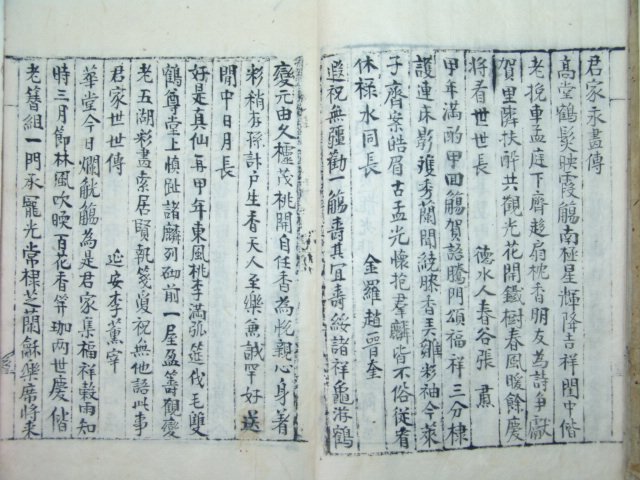 君家永晝傳
高堂鶴髮映霞觴南極星輝降吉祥閨中偕
老挽車孟庭下齊趍扇桃香朋友為詩爭獻
賀里隣扶醉共觀光花開鐵樹春風暖餘慶
將看世世長 德水人春谷張
甲年滿酌甲回觴賀語騰門頌福祥三分棣
護連床影 秀蘭聞繞膝香美 彩袖今萊
子齊案皓眉古孟光懷抱羣麟皆不俗從看
休祿水同長 金羅趙晋奎
遐祝無疆勸一觴壽其宜壽綏諸祥龜游鶴
變元由久 茂桃開自任香為悅親心身着
彩稍存孫計戶生香天人至樂兼誠罕好送
閒中日月長
好是真仙再甲年東風桃李滿弧筵伐毛雙
鶴尊堂上慎趾諸麟列砌前一屋盈籌觀變
老五湖彩畫索居賢執箋復祝無他語此事
君家世世傳 延安李薰宰
華堂今日爛觥觴為是君家集福祥穀雨知
時三月節林風吹暖百花香笄珈兩世慶偕
老簪組一門承寵光常棣芝蘭龢樂席將來